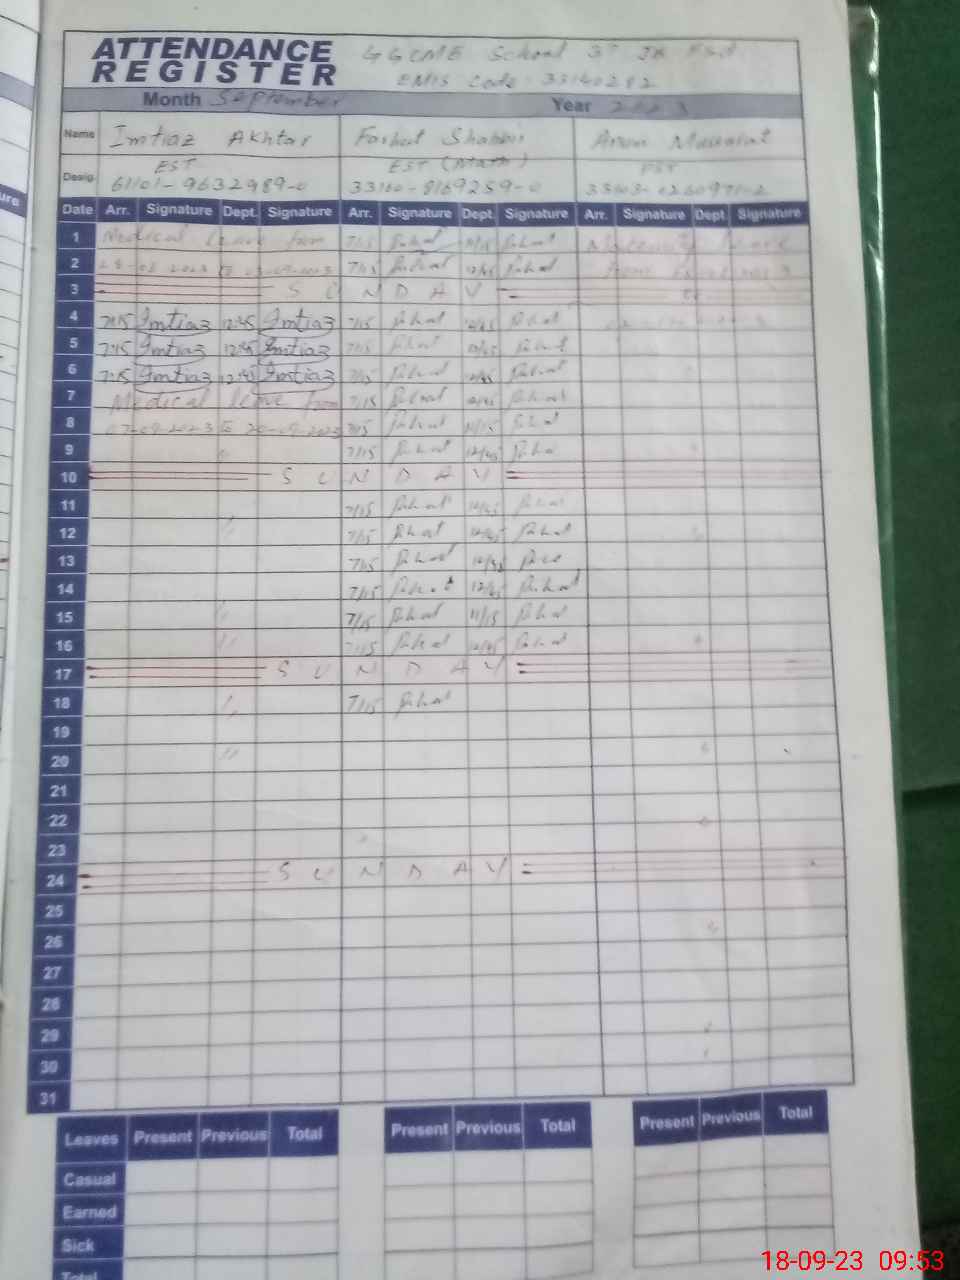 ATTENDANCE
REGISTER
School
EMIS Code: 33140282
Month September Year 2023
Name Imtiaz Akhtar Farhat
Desig. EST EST (Math) PST
61101-9632989-0 33100-8169259-0
Date Arr. Signature Dept. Signature Arr. Signature Dept. Signature Arr. Signature Dept. Signature
1 Medical leave from 7/15 Farhat 11/15 Farhat Maternity leave
2 28-08-2023 to 02-09-2023 7/15 Farhat 12/45 Farhat from
3 SUNDAY
4 7:15 Imtiaz 12:45 Imtiaz 7/15 Farhat 12/45 Farhat
5 7:15 Imtiaz 12:45 Imtiaz 7/15 Farhat 12/45 Farhat
6 7:15 Imtiaz 12:45 Imtiaz 7/15 Farhat 12/45 Farhat
7 Medical leave from 7/15 Farhat 12/45 Farhat
8 07-09-2023 to 20-09-2023 7/15 Farhat 11/15 Farhat
9 7/15 Farhat 12/45 Farhat
10 SUNDAY
11 7/15 Farhat 12/45 Farhat
12 7/15 Farhat 12/45 Farhat
13 7/15 Farhat 12/45
14 7/15 Farhat 12/45 Farhat
15 7/15 Farhat 11/15 Farhat
16 7/15 Farhat 12/45 Farhat
17 SUNDAY
18 7/15 Farhat
19
20
21
22
23
24 SUNDAY
25
26
27
28
29
30
31
Leaves Present Previous Total Present Previous Total Present Previous Total
Casual
Earned
Sick
Total
18-09-23 09:53